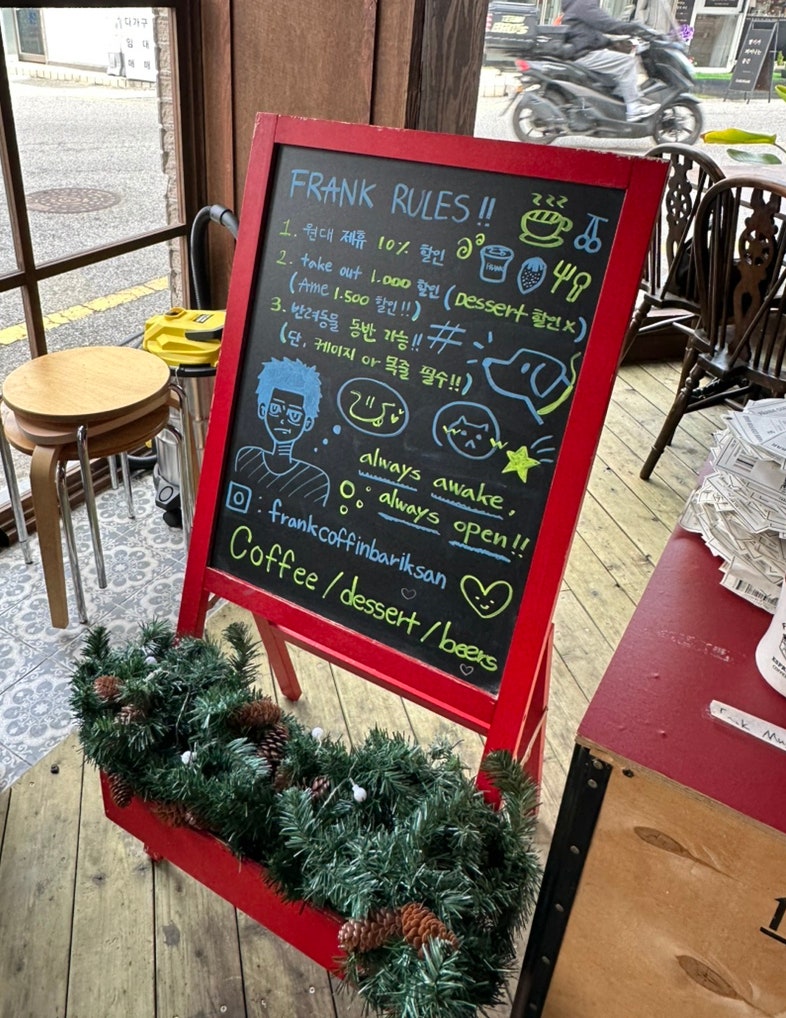 다가구
임대
매매
FRANK RULES!!
1. 원대 제휴 10% 할인
2. take out 1.000 할인 (Dessert 할인x)
(Ame 1.500 할인!!)
3. 반려동물 동반 가능!!
(단, 케이지 or 목줄 필수!!)
always awake,
always open!!
: frankcoffinbariksan
Coffee/dessert/beers